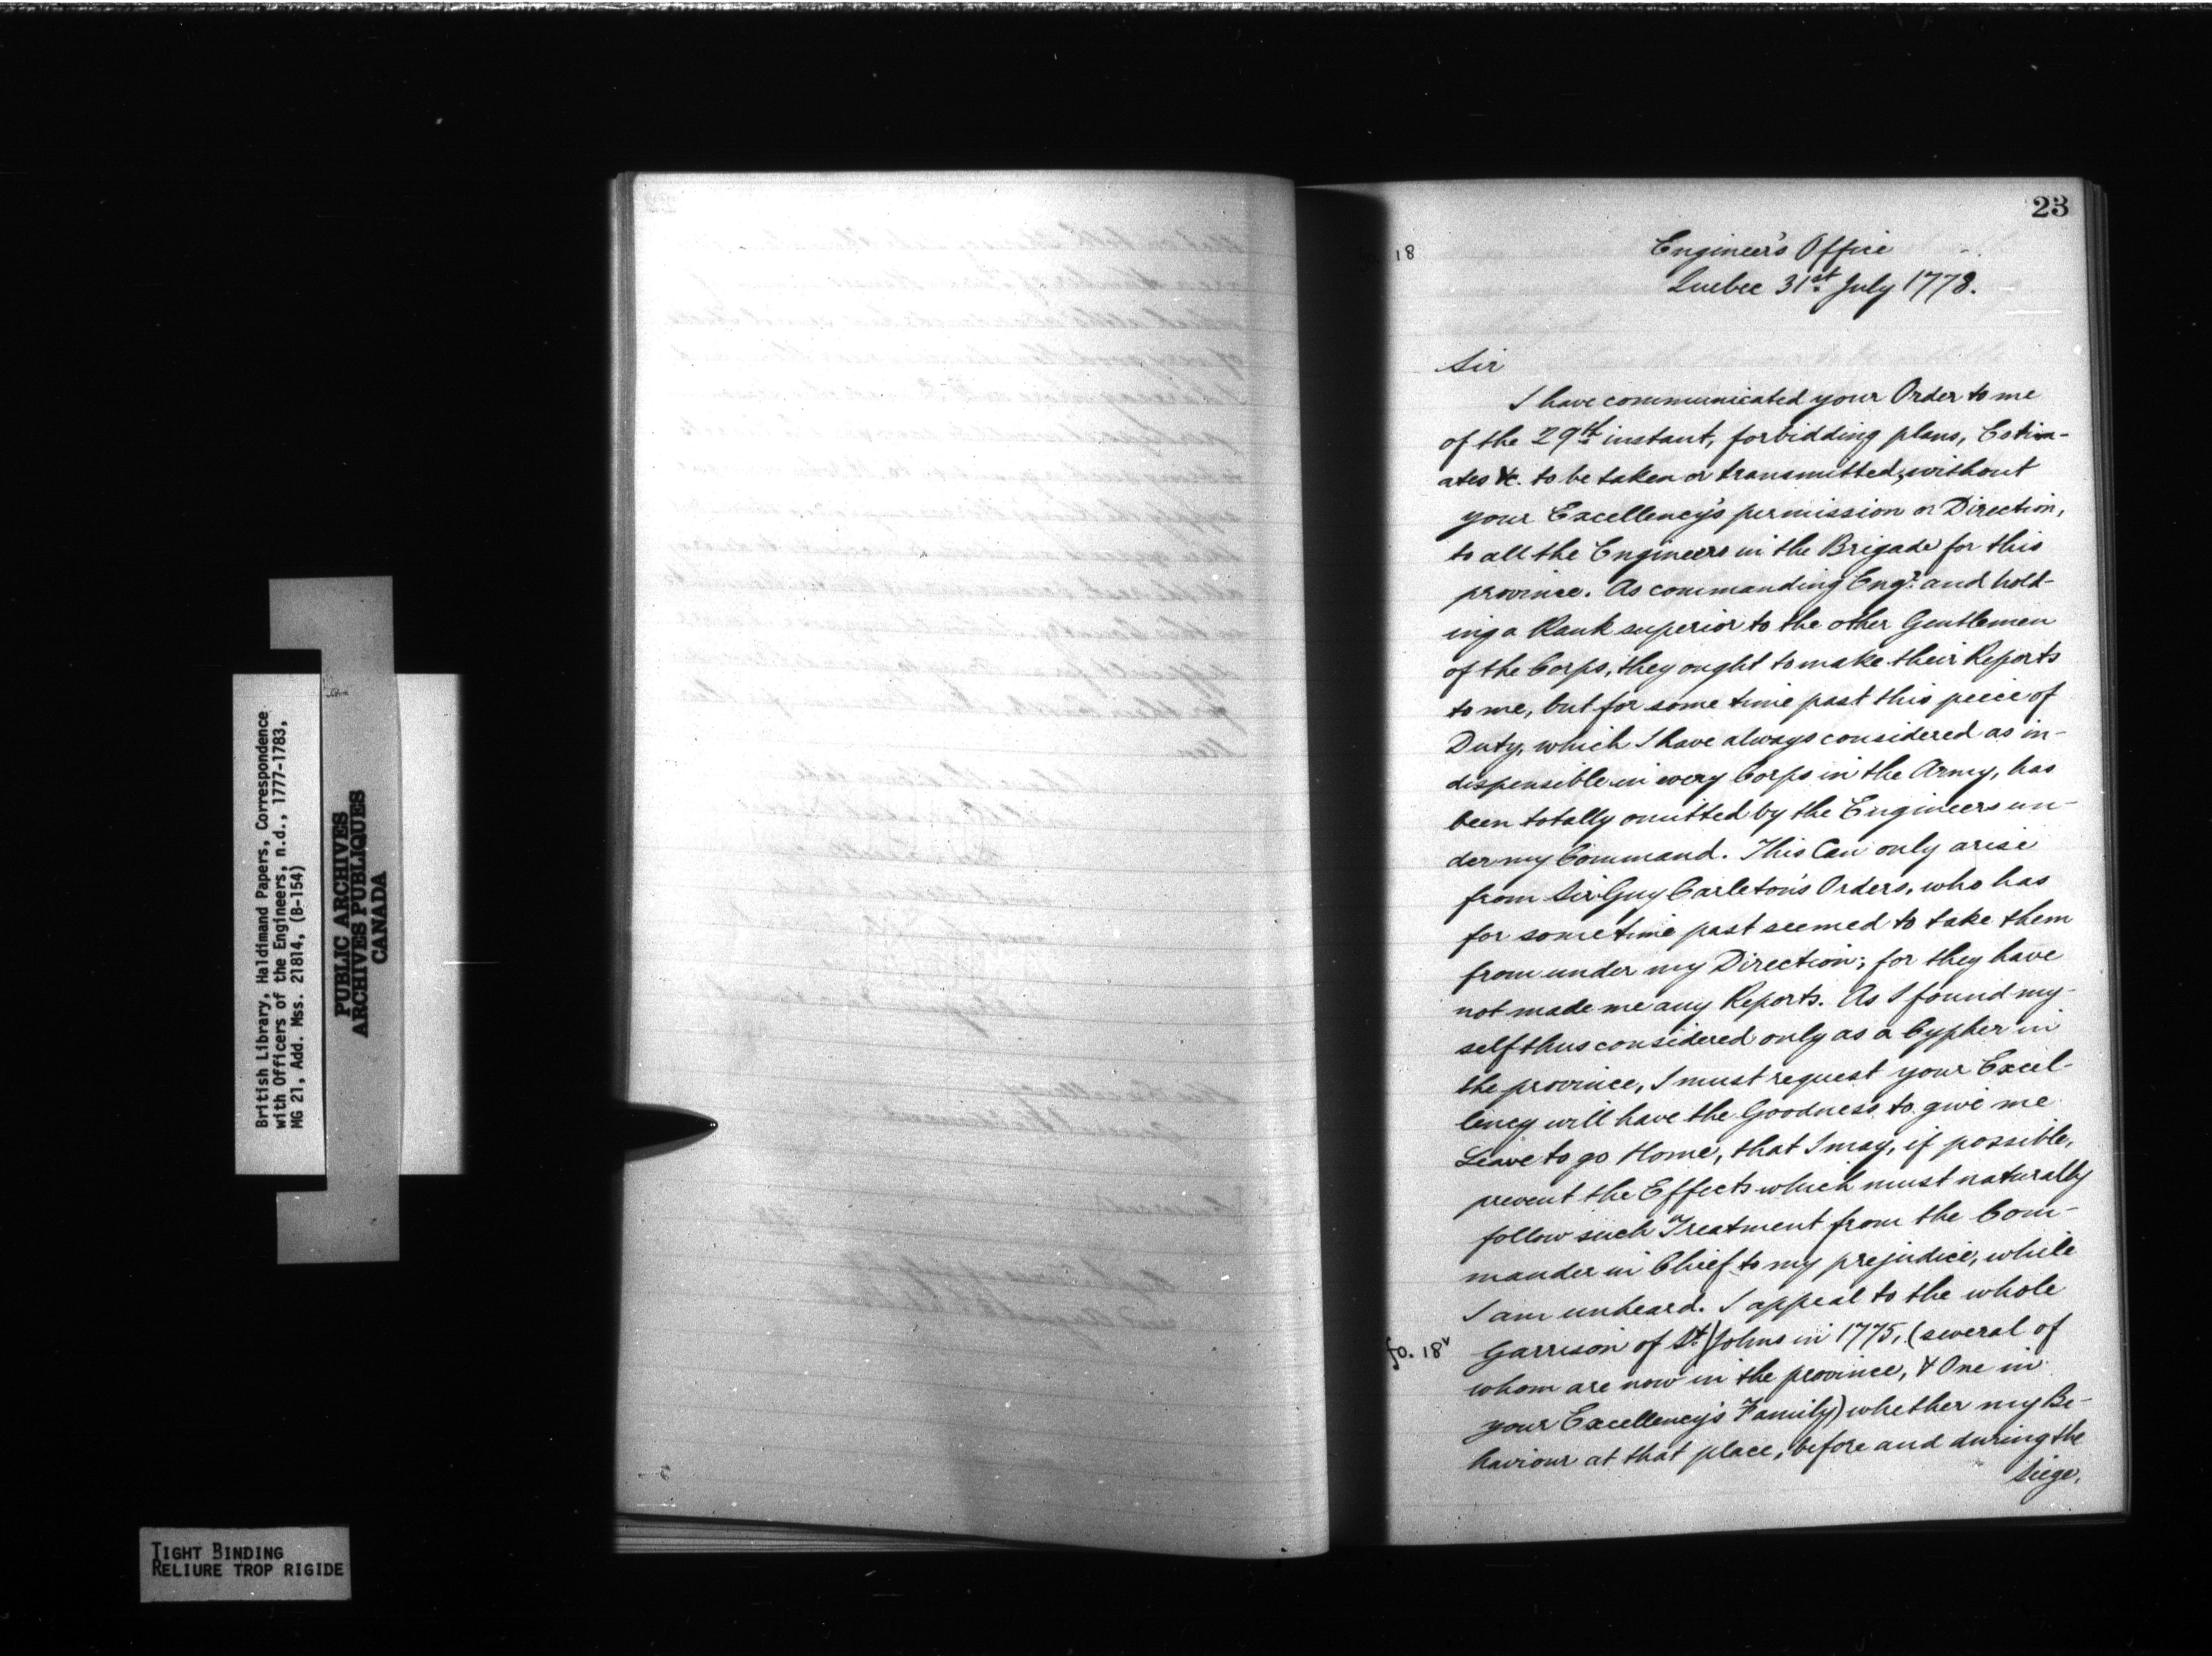 British Library, Haldimand Papers, Correspondence
with Officers of the Engineers, n.d., 1777-1783,
MG 21, Add. Mss. 21814, (B-154)
PUBLIC ARCHIVES
ARCHIVES PUBLIQUES
CANADA
TIGHT BINDING
RELIURE TROP RIGIDE
23
fo. 18
Engineer's Office
Quebec 31st July 1778.
Sir
I have communicated your Order to me
of the 29th instant, forbidding plans, Estim-
ates &c. to be taken or transmitted, without
your Excellency's permission or Direction,
to all the Engineers in the Brigade for this
province. As commanding Engr. and hold-
ing a Rank superior to the other Gentlemen
of the Corps, they ought to make their Reports
to me, but for some time past this piece of
Duty, which I have always considered as in-
dispensible in every Corps in the Army, has
been totally omitted by the Engineers un-
der my Command. This Can only arise
from Sir Guy Carleton's Orders, who has
for some time past seemed to take them
from under my Direction; for they have
not made me any Reports. As I found my-
self thus considered only as a Cypher in
the province, I must request your Excel-
lency will have the Goodness to give me
Leave to go Home, that I may, if possible,
prevent the Effects which must naturally
follow such Treatment from the Com-
mander in Chief to my prejudice, while
I am unheard. I appeal to the whole
fo. 18v Garrison of St. Johns in 1775, (several of
whom are now in the province, & One in
your Excellency's Family) whether my Be-
haviour at that place, before and during the
Siege,